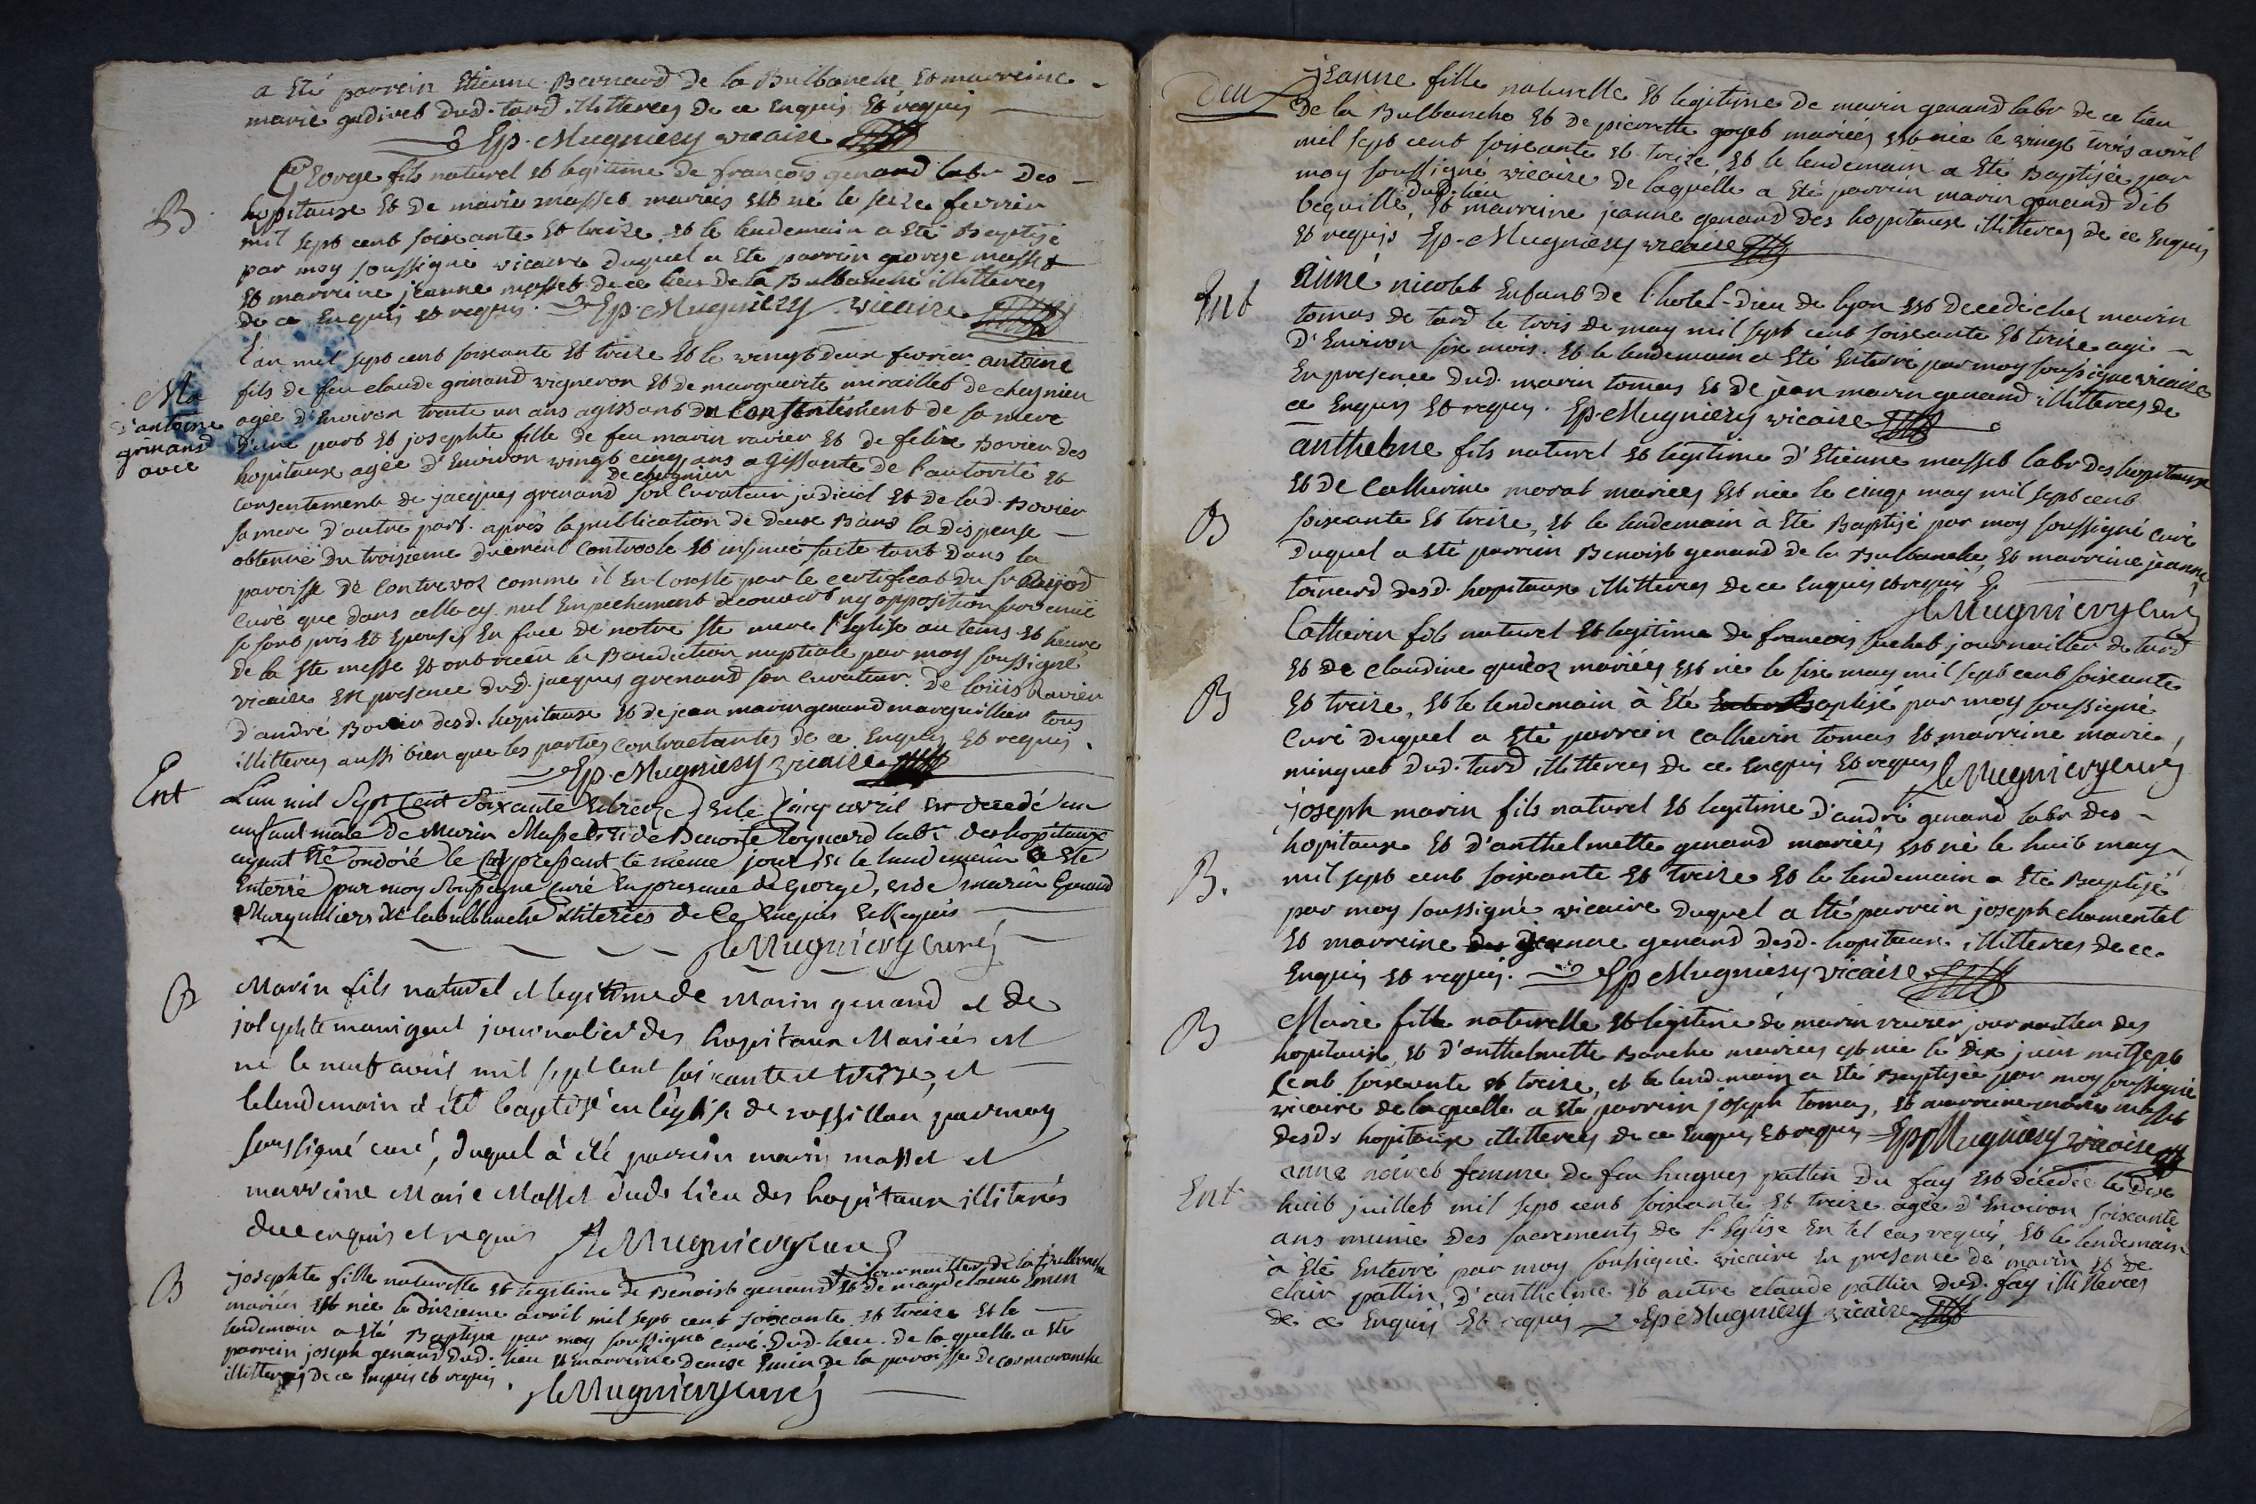 a Eté parrein Etienne Bernard de la Bulbanche, Et marreine
marie gudivet dud. tard. illitterez de ce Enquis Et requis
Ep. Mugniery vicaire
B
George fils naturel Et legitime de francois genand labr Des
hopitaux Et de marie masset mariés Est né le seize fevrier
mil sept cent soixante Et treize. Et le lendemain a Eté Baptisé
par moy soussigné vicaire Duquel a Eté parrein george masset
Et marreine jeanne masset de ce lieu De la Bulbanche illitterez
de ce Enquis Et requis. Ep. Mugniery vicaire
Ma
d'antoine
grinand
avec
L'an mil sept cent soixante Et treize Et le vingt deux fevrier antoine
fils de feu claude grinand vigneron Et de marguerite miraillet de chegnieu
agée d'Environ trente un ans agissant du Consentément de sa mere
D'une part Et josephte fille de feu marin ravier Et de felize Bovier des
hopitaux agée d'Environ vingt cinq ans agissante de l'autorité Et
consentement de jacques grenand de chegnieu son Curateur judiciel Et de lad. Bovier
sa mere d'autre part. après la publication de deux Bans la Dispense
obtenüe Du troisieme Duëment Controolé Et insinué faite tant Dans la
paroisse de Contrevoz comme il En Conste par le certificat du sr
Curé que dans celle cy. nul Empechement decouvert ny opposition survenuë
se sont pris Et Epousés En face de notre Ste mere l'Eglise au tems Et heure
de la Ste messe Et ont recëu la Benediction nuptiale par moy soussigné
vicaire En presence dud. jacques grenand son curateur. De loüis Ravier
d'andré Bovier desd. hopitaux Et de jean marin genand marguillier tous
illitterez aussi bien que les parties contractantes de ce Enquis Et requis.
Ep. Mugniery vicaire
Ent
L'an mil Sept Cent Soixante Et treize Et le Cinq avril Est decedé un
anfant mâle De Marin Masset Et de Benoite Coynard labr. des hopitaux
ayant Eté ondoïé le Cas pressant le même jour Et le landemain a Eté
Enterré par moy Soussigné Curé En presence de George, et de marin Genand
Marguilliers de la bulbanche illiterées de Ce Enquis et Requis
Mugniery curé
B
Marin fils naturel et legitime de Marin genand et de
josephte manigant journalier des hopitaux Mariés est
né le neuf avril mil sept cent soixante et treize, et
le lendemain a été baptisé en l'église de rossillon par moy
soussigné curé, duquel à été parrein marin masset et
marreine Marie Masset dud. lieu des hopitaux illiterés
de ce enquis et requis Mugniery curé
B
josephte fille naturelle Et legitime de Benoist genand journaillier de la Bulbanche Et de magdelaine Emin
mariés Est née le dixieme avril mil sept cent soixante Et treize Et le
lendemain a Eté Baptisée par moy soussigné curé. Dud. lieu. De laquelle a Eté
parrein joseph genand Dud. lieu Et marreine Denise Emin De la paroisse De cormaranche
illitterez De ce Enquis Et requis.
Mugniery curé
jeanne fille naturelle Et legitime de marin genand labr de ce lieu
De la Bulbanche Et De pierrette goyet mariés Est née le vingt trois avril
mil sept cent soixante Et treize, Et le lendemain a Eté Baptisée par
moy soussigné vicaire De laquelle a Eté parrein marin genand dit
bequille, dud. lieu Et marreine jeanne genand Des hopitaux illitterez de ce Enquis
Et requis Ep. Mugniery vicaire
Ent
aimé nicolet Enfant de l'hotel-Dieu de lyon Est Decedé chez marin
tomas de tard le trois de may mil sept cent soixante Et treize agé
D'Environ six mois. Et le lendemain a Eté Enterré par moy soussigné vicaire
En presence Dud. marin tomas Et de jean marin genand illitterez de
ce Enquis Et requis. Ep. Mugniery vicaire
B
anthelme fils naturel Et legitime d'Etienne masset labr Des hopitaux
Et De Catherine morat mariés Est née le cinq may mil sept cent
soixante Et treize, Et le lendemain à Eté Baptisé par moy soussigné curé
Duquel a Eté parrein Benoist genand de la Bulbanche Et marreine jeanne
toinard desd. hopitaux illitterez De ce Enquis Et requis
Mugniery Curé
B
Catherin fils naturel Et legitime de francois suchet journaillier de tard
Et De claudine quicoz mariés Est né le six may mil sept cent soixante
Et treize, Et le lendemain à Eté Baptisé par moy soussigné
Curé Duquel a Eté parrein catherin tomas Et marreine marie
minguet dud. tard illitterez De ce Enquis Et requis Mugniery curé
B.
joseph marin fils naturel Et legitime d'andré genand labr des
hopitaux Et d'anthelmette genand mariés Est né le huit may
mil sept cent soixante Et treize Et le lendemain a Eté Baptisé
par moy soussigné vicaire Duquel a Eté parrein joseph chamentel
Et marreine jeanne genand desd. hopitaux illitterez De ce
Enquis Et requis. Ep Mugniery vicaire
B
Marie fille naturelle Et legitime de marin ravier journaillier des
hopitaux Et d'anthelmette Barche mariés est née le Dix juin mil sept
cent soixante Et treize, et le lendemain a Eté Baptisée par moy soussigné
vicaire de laquelle a Eté parrein joseph tomas, Et marreine marie masset
desd. hopitaux illitterez De ce Enquis Et requis Ep Mugniery vicaire
Ent
anne noiret femme De feu hugues pattin Du fay Est Décedée le Dix
huit juillet mil sept cent soixante Et treize agée d'Environ soixante
ans munie Des sacrements de l'Eglise En tel cas requis Et le lendemain
à Eté Enterré par moy soussigné vicaire En presence de marin Et De
clair pattin D'anthelme Et autre claude pattin Dud. fay illitterez
de ce Enquis Et requis Ep Mugniery vicaire